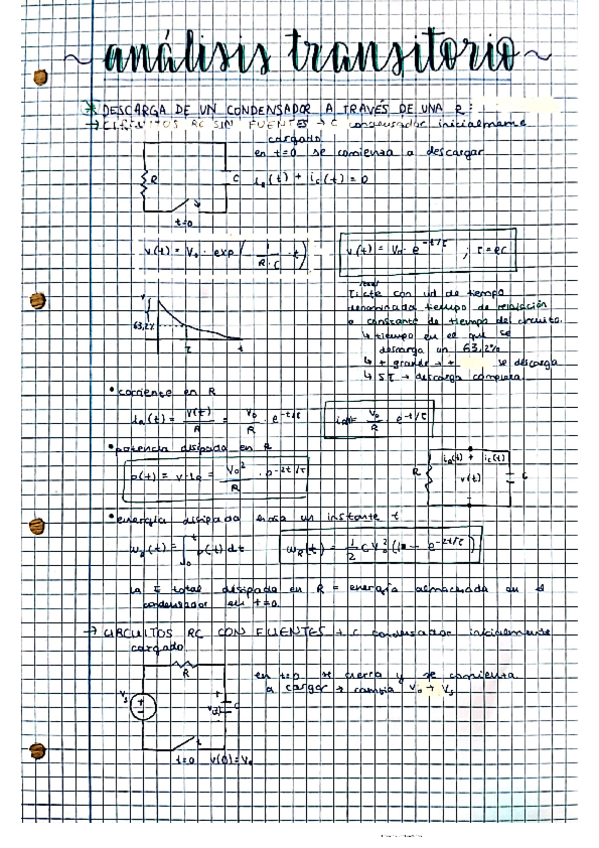 ~ análisis transitorio ~
* DESCARGA DE UN CONDENSADOR A TRAVÉS DE UNA R:
→ CIRCUITOS RC SIN FUENTES → C condensador inicialmente
cargado
en t=0 se comienza a descargar
R
C
i_R(t) + i_C(t) = 0
t=0
v(t) = V₀ · exp(- 1/(R·C) · t)
v(t) = V₀ · e^(-t/τ) ; τ = RC
τ: cte con ud de tiempo
denominada tiempo de relajación
o constante de tiempo del circuito.
↳ tiempo en el que se
descarga un 63,2%
↳ + grande → + se descarga
↳ 5τ → descarga completa
v
63,2%
τ
t
• corriente en R
i_R(t) = v(t)/R = V₀/R · e^(-t/τ)
V₀/R e^(-t/τ)
• potencia disipada en R
p(t) = v·i_R = V₀²/R · e^(-2t/τ)
R
i_R(t) + i_C(t)
v(t)
C
• energía disipada hasta un instante t
w_R(t) = ∫₀ᵗ p(t) dt
w_R(t) = 1/2 C V₀² (1 - e^(-2t/τ))
La E total disipada en R = energía almacenada en el
condensador en t=0.
→ CIRCUITOS RC CON FUENTES → C condensador inicialmente
cargado
R
en t=0 se cierra y se comienza
a cargar → cambia V₀ → Vs
Vs
C
t=0 v(0)=V₀